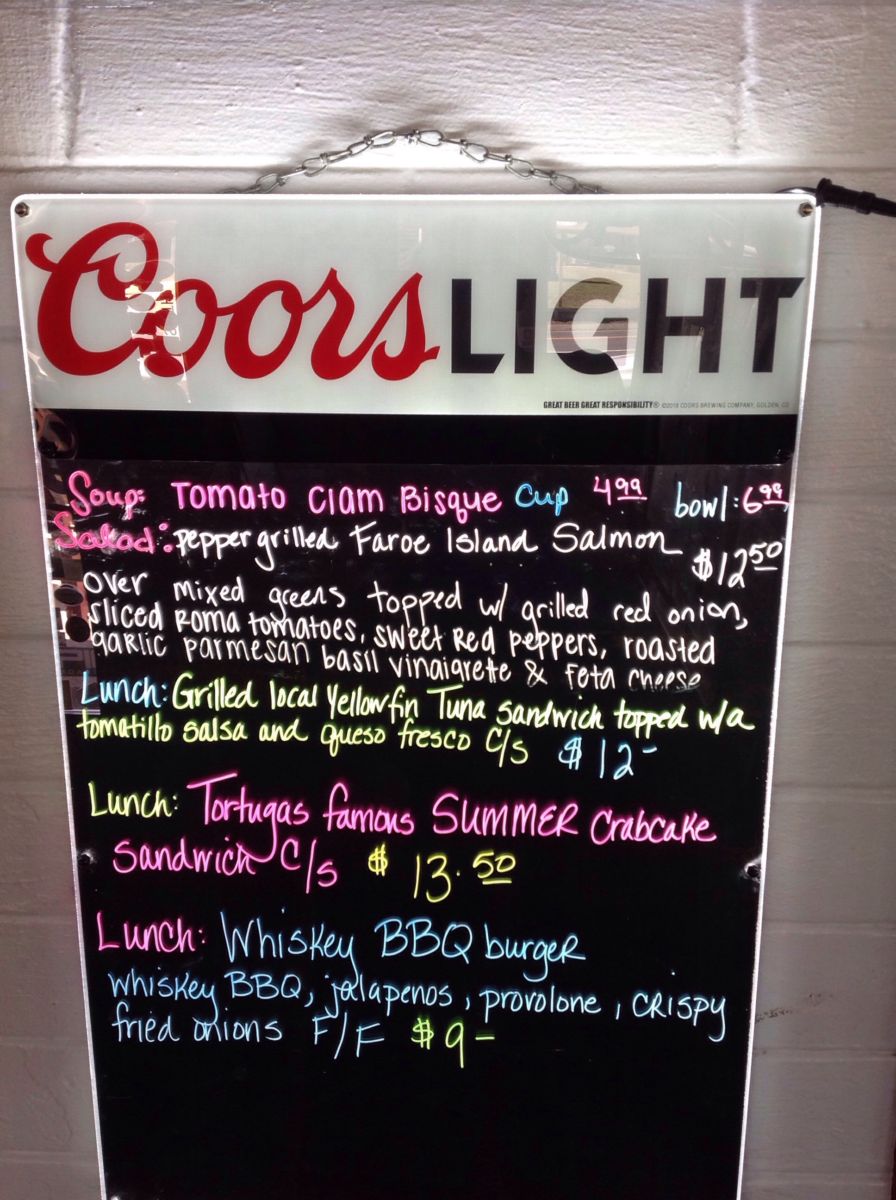 Coors LIGHT
GREAT BEER GREAT RESPONSIBILITY® ©2018 COORS BREWING COMPANY, GOLDEN, CO
Soup: Tomato Clam Bisque Cup 4.99 bowl: 6.99
Salad: pepper grilled Faroe Island Salmon $12.50
over mixed greens topped w/ grilled red onion,
sliced Roma tomatoes, sweet Red peppers, roasted
garlic parmesan basil vinaigrette & Feta cheese
Lunch: Grilled local Yellowfin Tuna sandwich topped w/a
tomatillo salsa and queso fresco C/S $12-
Lunch: Tortugas famous SUMMER Crabcake
Sandwich C/S $ 13.50
Lunch: Whiskey BBQ burger
whiskey BBQ, jalapenos, provolone, crispy
fried onions F/F $9-